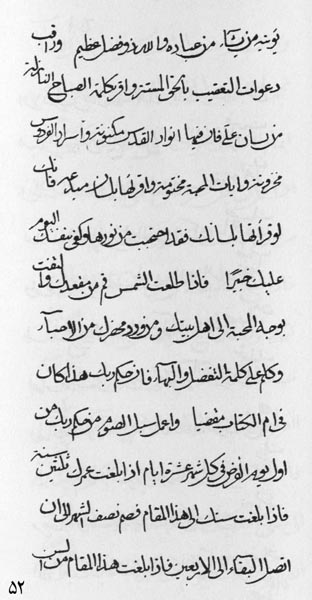 يؤتيه من يشاء من عباده والله ذو فضل عظيم واقرء
دعوات التعقيب بالخق المستة واقر بكلمة الصباح النازلة
من لسان علي فان فيها انوار القدس مكنونة واسرار الفردوس
مخزونة وايات المحبة مختومة واقرئها بلسان سيدك فانك
لو قرأتها بلسانك فقد احتجبت من نورها وكفى بنفسك اليوم
عليك خبيرًا فاذا طلعت الشمس قم من مقعدك والتفت
بوجه المحبة الى اهل بيتك ومن ورد محضرك من الاحباء
وكلم على كلمة التفضل والبهاء فان حكم ربك هذا كان
في ام الكتاب مقضيا واعمل سبل الصوم من حكم ربك من
اول يوم الفرض في كل شهر عشرة ايام اذا بلغت عمرك ثلثين سنة
فاذا بلغت سنك الى هذا المقام فصم نصف الشهر الى ان
اتصل البقاء الى الاربعين فاذا بلغت هذا المقام من السن
۵۲